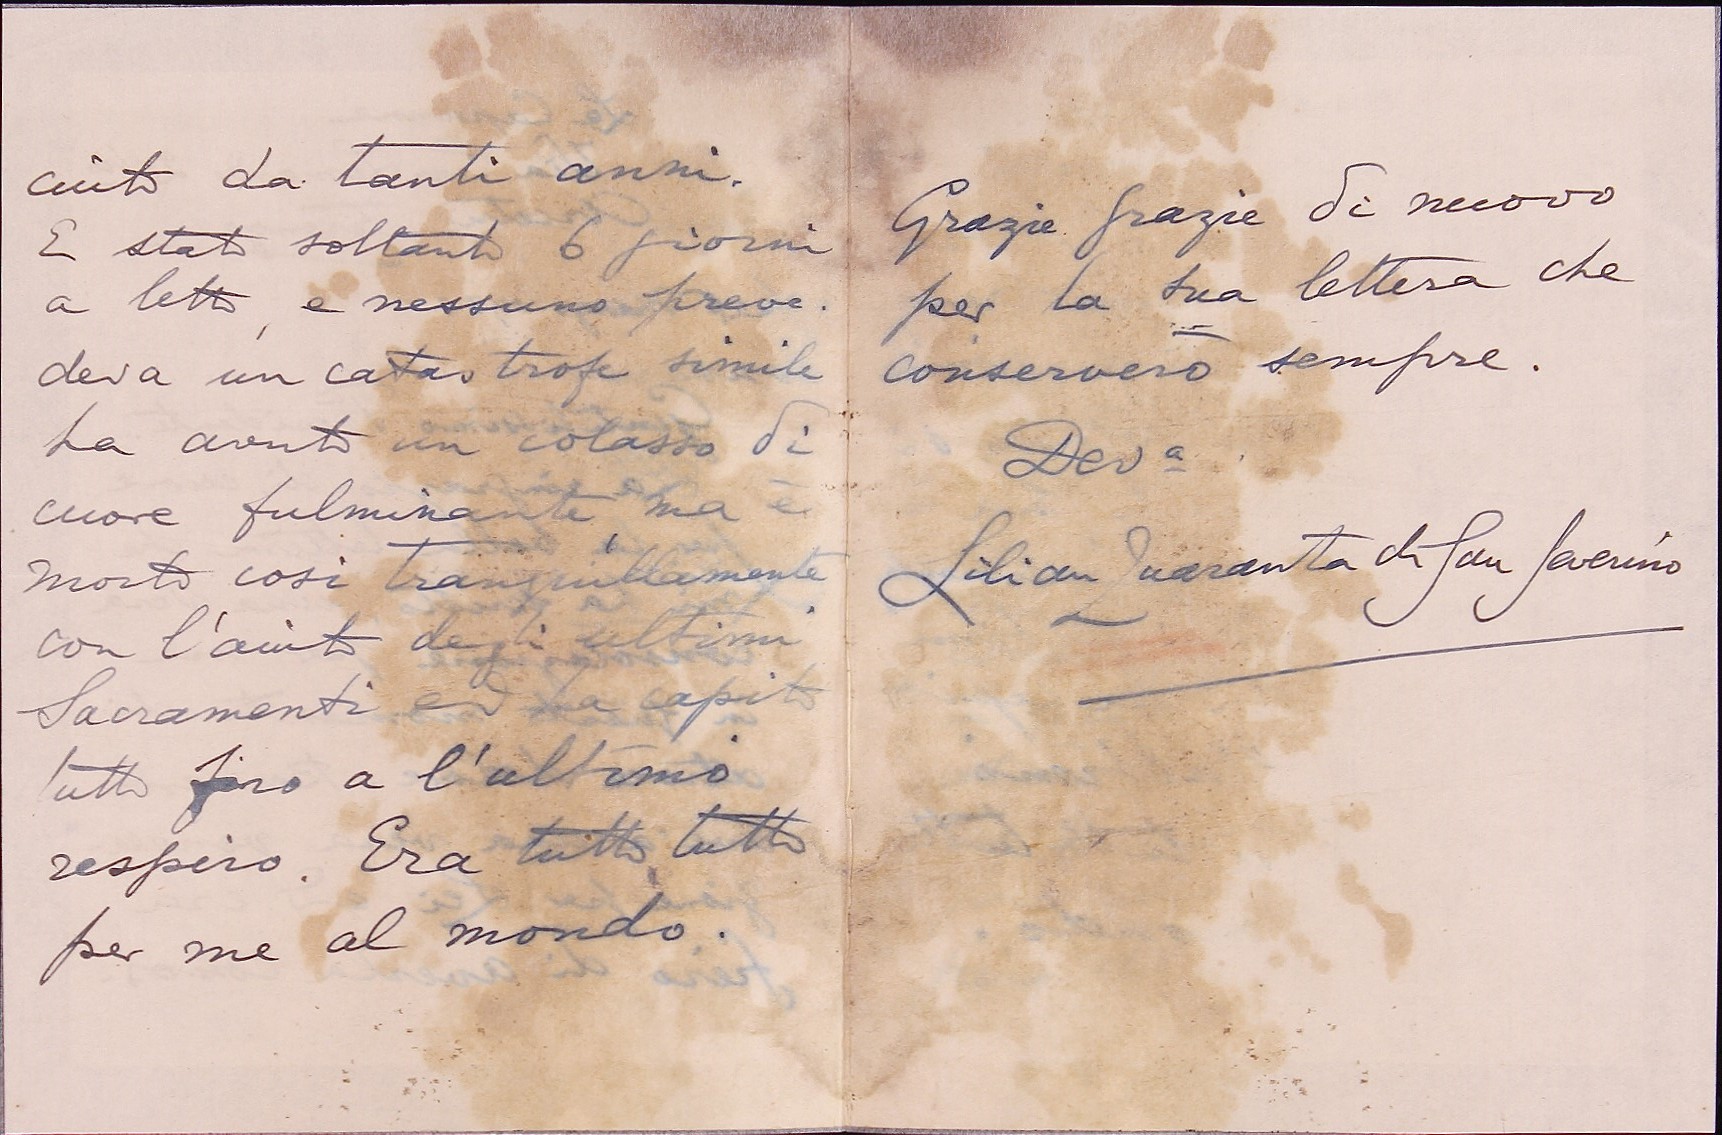 ciuto da tanti anni.
E stato soltanto 6 giorni
a letto, e nessuno preve-
deva un catastrofe simile
ha avuto un colasso di
cuore fulminante ma è
morto cosi tranquillamente
con l'aiuto degli ultimi
Sacramenti ed ha capito
tutto fino a l'ultimo
respiro. Era tutto tutto
per me al mondo.
Grazie grazie di nuovo
per la sua lettera che
conserverò sempre.
Devª
Lilian Quaranta di San Severino